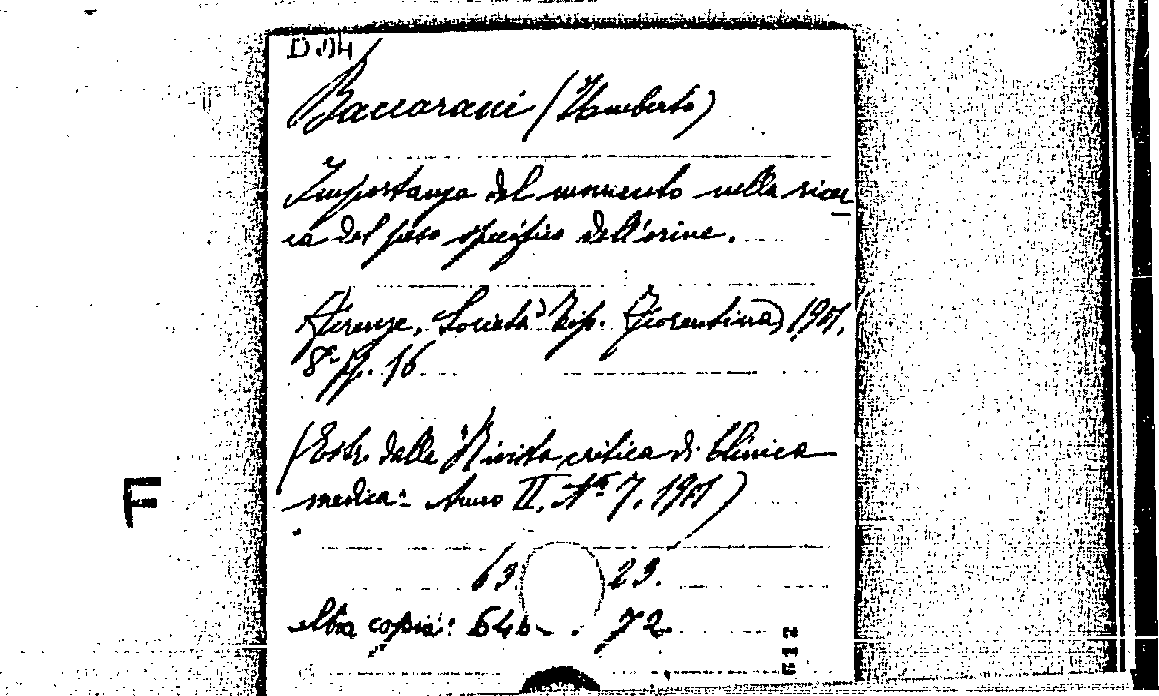 Baccarani (Umberto)
Importanza del momento nella ricer
ca del peso specifico dell'orine.
Firenze, Società Tip. Fiorentina, 1901,
8º pp. 16
(Estr. dalla "Rivista critica di Clinica
medica" Anno II, Nº 7, 1901)
63 23.
altra copia: 546 . 72
F